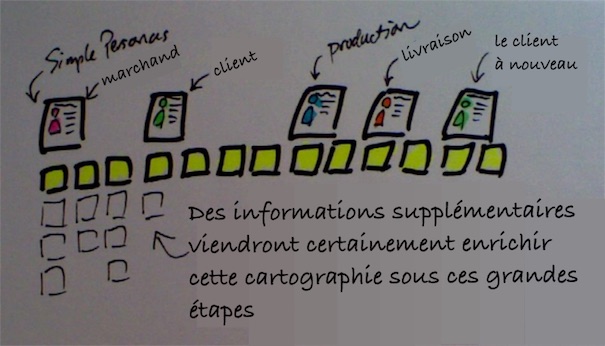 Simple Personas
marchand
client
production
livraison
le client
à nouveau
Des informations supplémentaires
viendront certainement enrichir
cette cartographie sous ces grandes
étapes